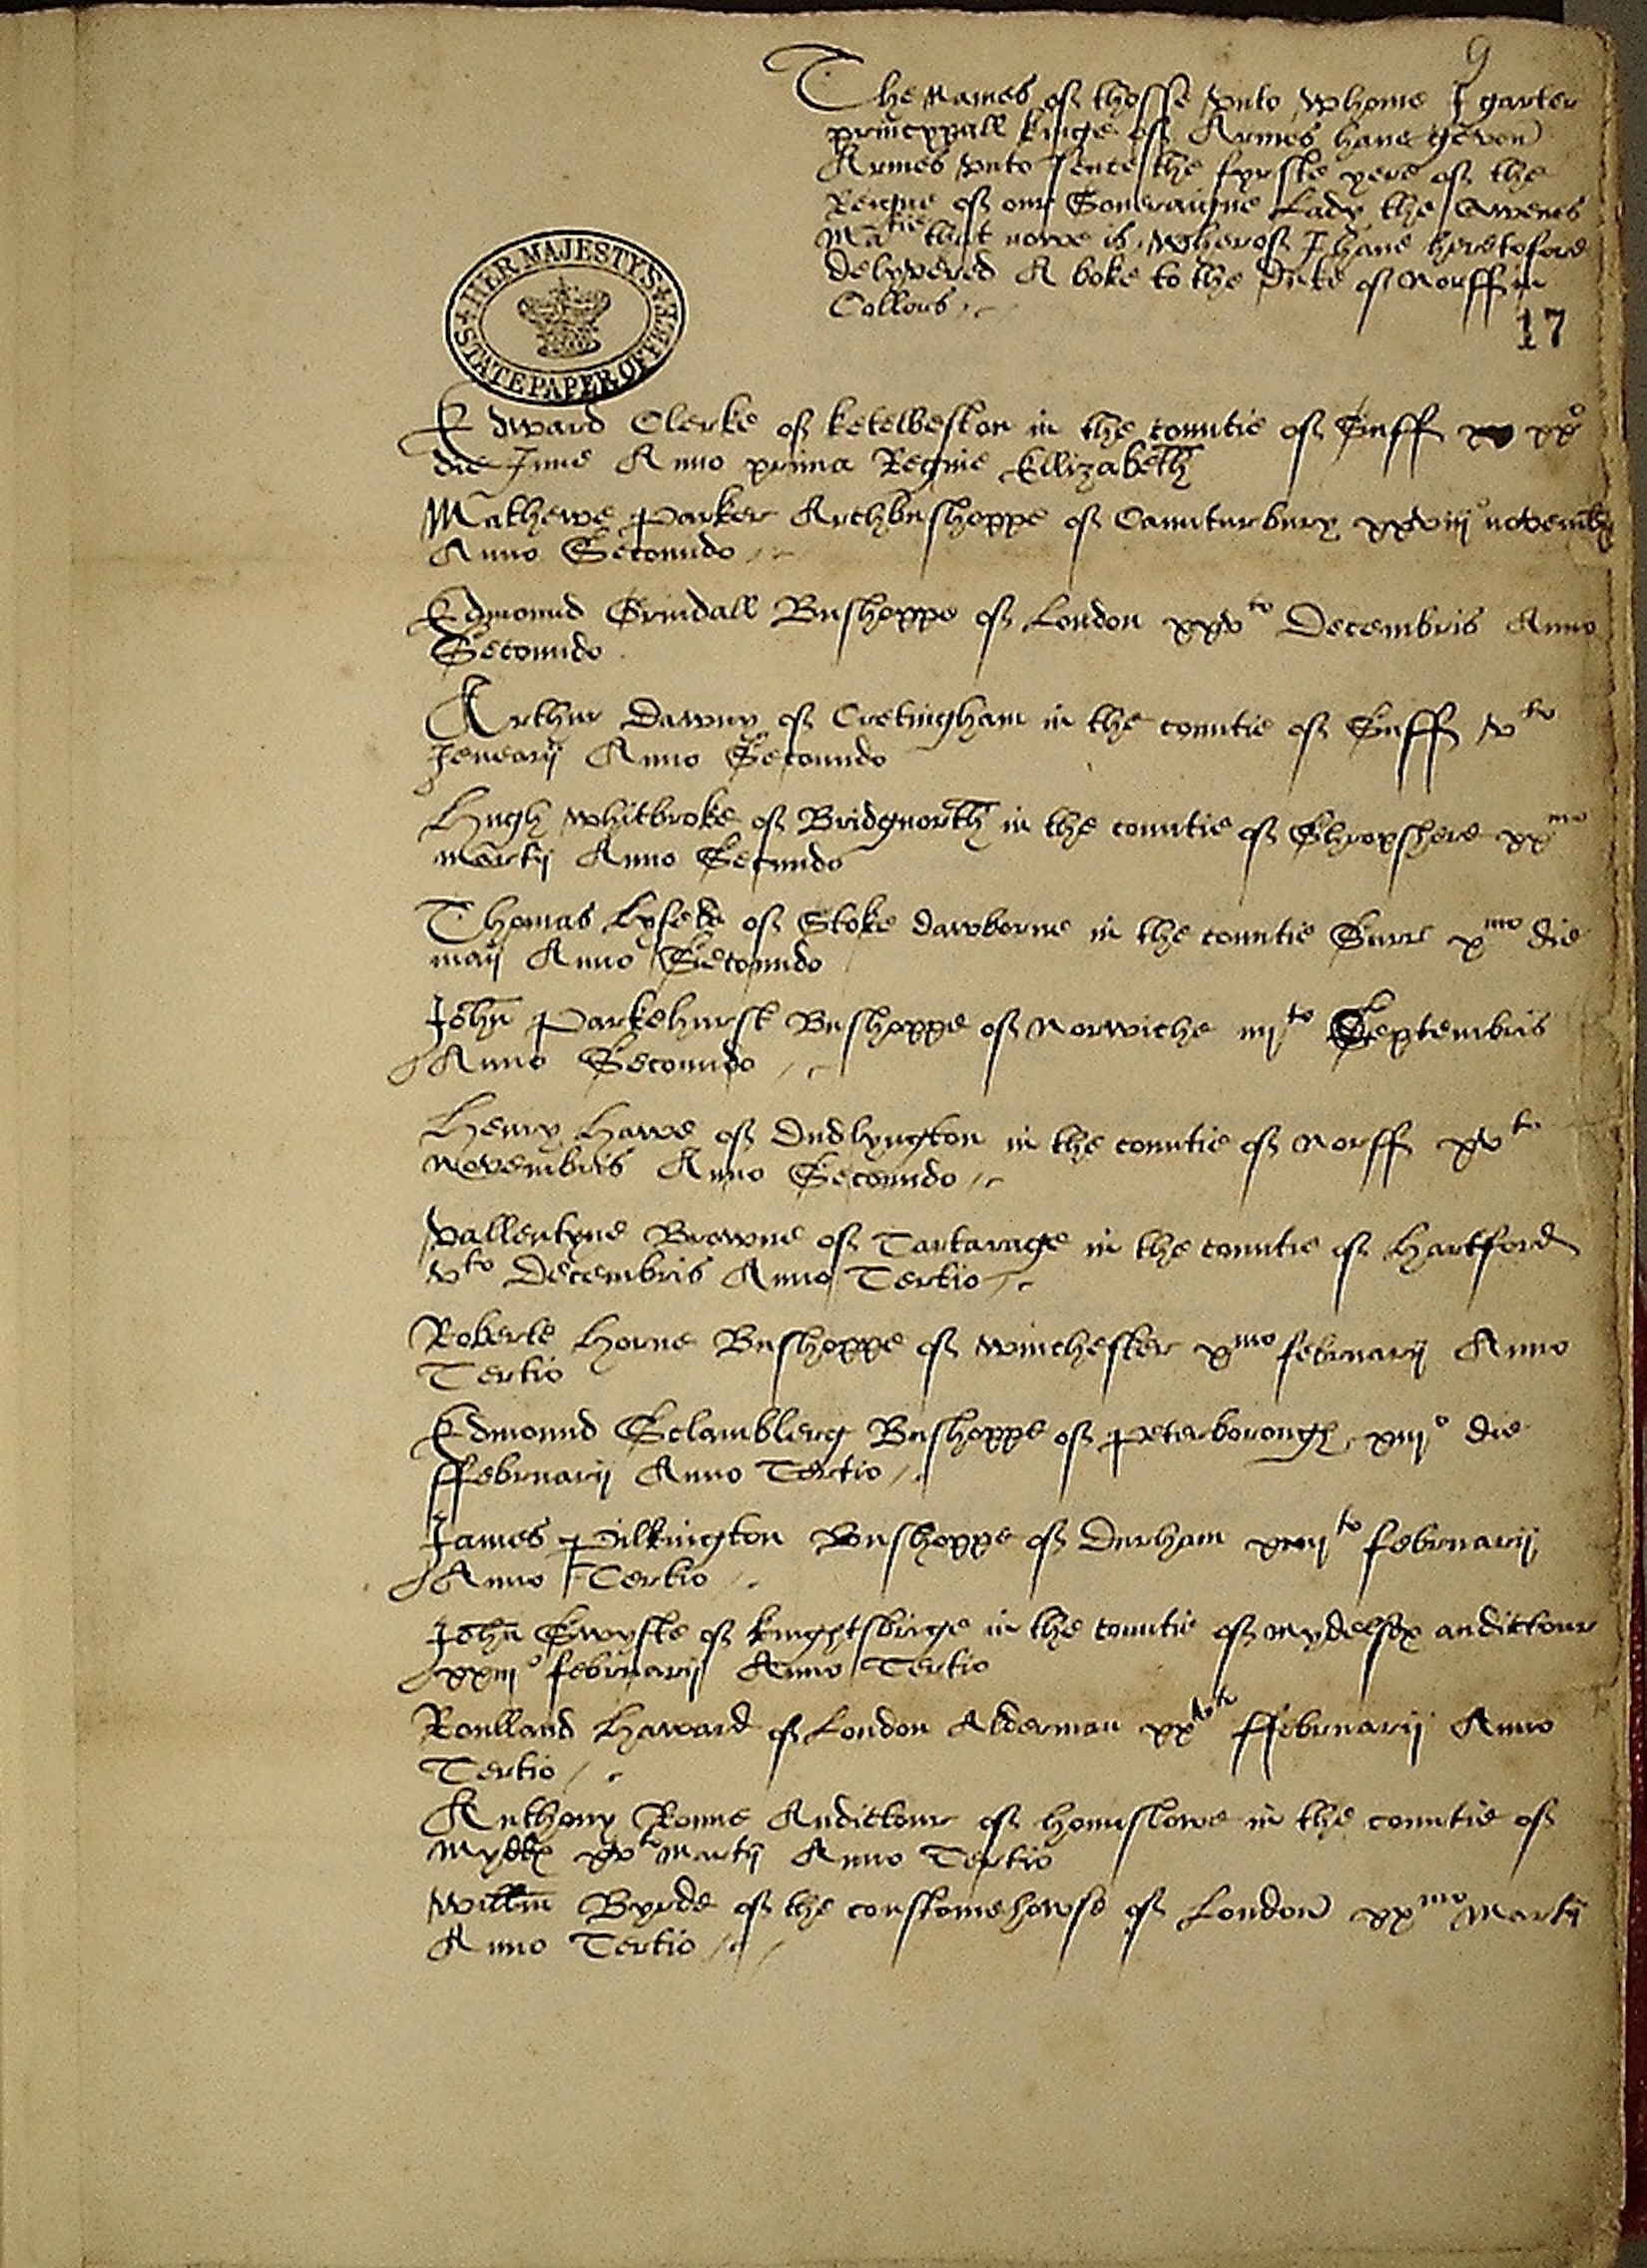 9
The names of thosse vnto whome I garter
princypall kinge of Armes haue geven
Armes vnto sence the fyrste yere of the
Reigne of our Soueraigne Lady the Qwenes
Matie that nowe is, wherof I haue heretofore
delyvered A boke to the Duke of Norff in
Collors
17
HER MAJESTY'S STATE PAPER OFFICE
Edward Clerke of ketelbeston in the countie of Suff xxo
die June Anno primo Regine Ellizabeth
Mathewe Parker Archbushoppe of Caunturbury xxviijo novembris
Anno Secoundo
Edmound Grindall Bushoppe of London xxvto Decembris Anno
Secoundo
Arthur Dawny of Cretingham in the countie of Suff vto
Jenearij Anno Secoundo
Hugh Whitbroke of Bridgnorth in the countie of Shropshere xxmo
martij Anno Secundo
Thomas Lyfelde of Stoke dawborne in the countie Surre xmo die
maij Anno Secoundo
John Parkehurst Bushoppe of Norwiche iiijto Septembris
Anno Secoundo
Henry Hawe of Dudlyngton in the countie of Norff xvto
Novembris Anno Secoundo
Vallentyne Browne of Tartarage in the countie of Hartford
vto Decembris Anno Tertio
Roberte Horne Bushoppe of Winchester xmo februarij Anno
Tertio
Edmound Sclamblerg Bushoppe of Peterborough xiijo die
ffebruarij Anno Tertio
James Pilkington Bushoppe of Durham xiiijto februarij
Anno Tertio
John Swyfte of knightsbirge in the countie of Mydelsex audictour
xxiijo februarij Anno Tertio
Roulland Haward of London Alderman xxvto ffebruarij Anno
Tertio
Anthony Roune Audictour of hounslowe in the countie of
Myddx xvto Martij Anno Tertio
Willm Byrde of the coustomehowse of London xxmo Martij
Anno Tertio